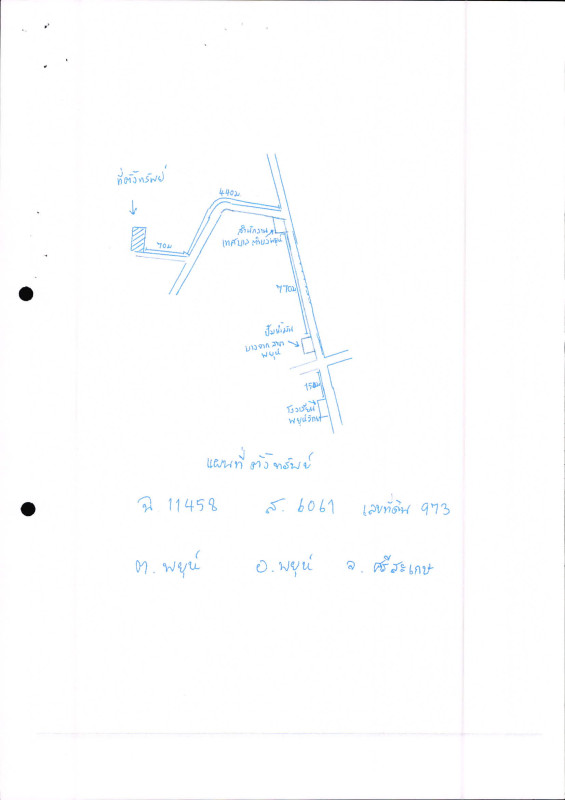 ที่ตั้งทรัพย์
440ม.
70ม
สำนักงาน
เทศบาลตำบลพยุห์
770ม.
ปั๊มน้ำมัน
บางจาก สาขา
พยุห์
150ม
โรงเรียน
พยุห์วิทยา
แผนที่ตั้งทรัพย์
ฉ 11458 ส. 6061 เลขที่ดิน 973
ต. พยุห์ อ. พยุห์ จ. ศรีสะเกษ